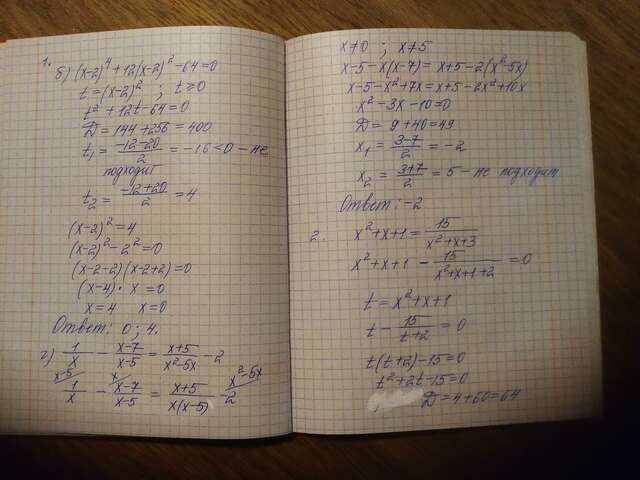 1.
б) (x-2)⁴+12(x-2)²-64=0
t=(x-2)² ; t≥0
t²+12t-64=0
D=144+256=400
t₁=(-12-20)/2=-16<0-не
подходит
t₂=(-12+20)/2=4
(x-2)²=4
(x-2)²-2²=0
(x-2-2)(x-2+2)=0
(x-4)·x=0
x=4 x=0
Ответ: 0; 4.
г) 1/x - (x-7)/(x-5) = (x+5)/(x²-5x) - 2
x-5 x x²-5x
1/x - (x-7)/(x-5) = (x+5)/(x(x-5)) - 2
x≠0 ; x≠5
x-5-x(x-7)=x+5-2(x²-5x)
x-5-x²+7x=x+5-2x²+10x
x²-3x-10=0
D=9+40=49
x₁=(3-7)/2=-2
x₂=(3+7)/2=5-не подходит
Ответ: -2
2. x²+x+1=15/(x²+x+3)
x²+x+1 - 15/(x²+x+1+2) = 0
t=x²+x+1
t - 15/(t+2) = 0
t(t+2)-15=0
t²+2t-15=0
D=4+60=64